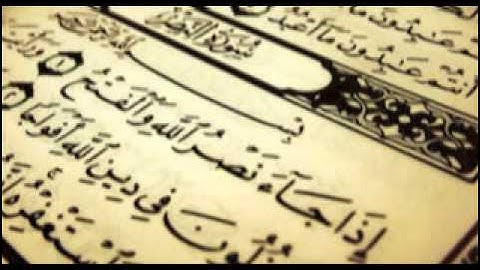 أَنتُمْ عَٰبِدُونَ مَآ أَعْبُدُ
سُورَةُ النَّصْرِ
إِذَا جَآءَ نَصْرُ اللَّهِ وَالْفَتْحُ ١ وَرَأَيْتَ
خُلُونَ فِي دِينِ اللَّهِ أَفْوَاجًا ٢
اسْتَغْفِرْهُ